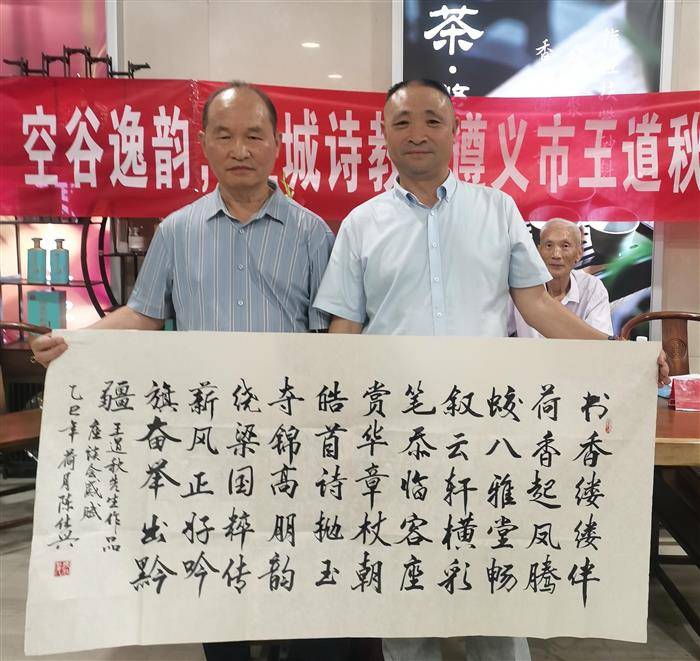 茶·
香
空谷逸韵，
城诗教
遵义市王道秋
书香缕缕伴
荷香起凤腾
蛟八雅堂畅
叙云轩横彩
笔恭临客座
赏华章杖朝
皓首诗抛玉
夺锦高朋韵
绕梁国粹传
薪风正好吟
旗奋举出黔
疆
王道秋先生作品
座谈会感赋
乙巳年荷月陈仕兴